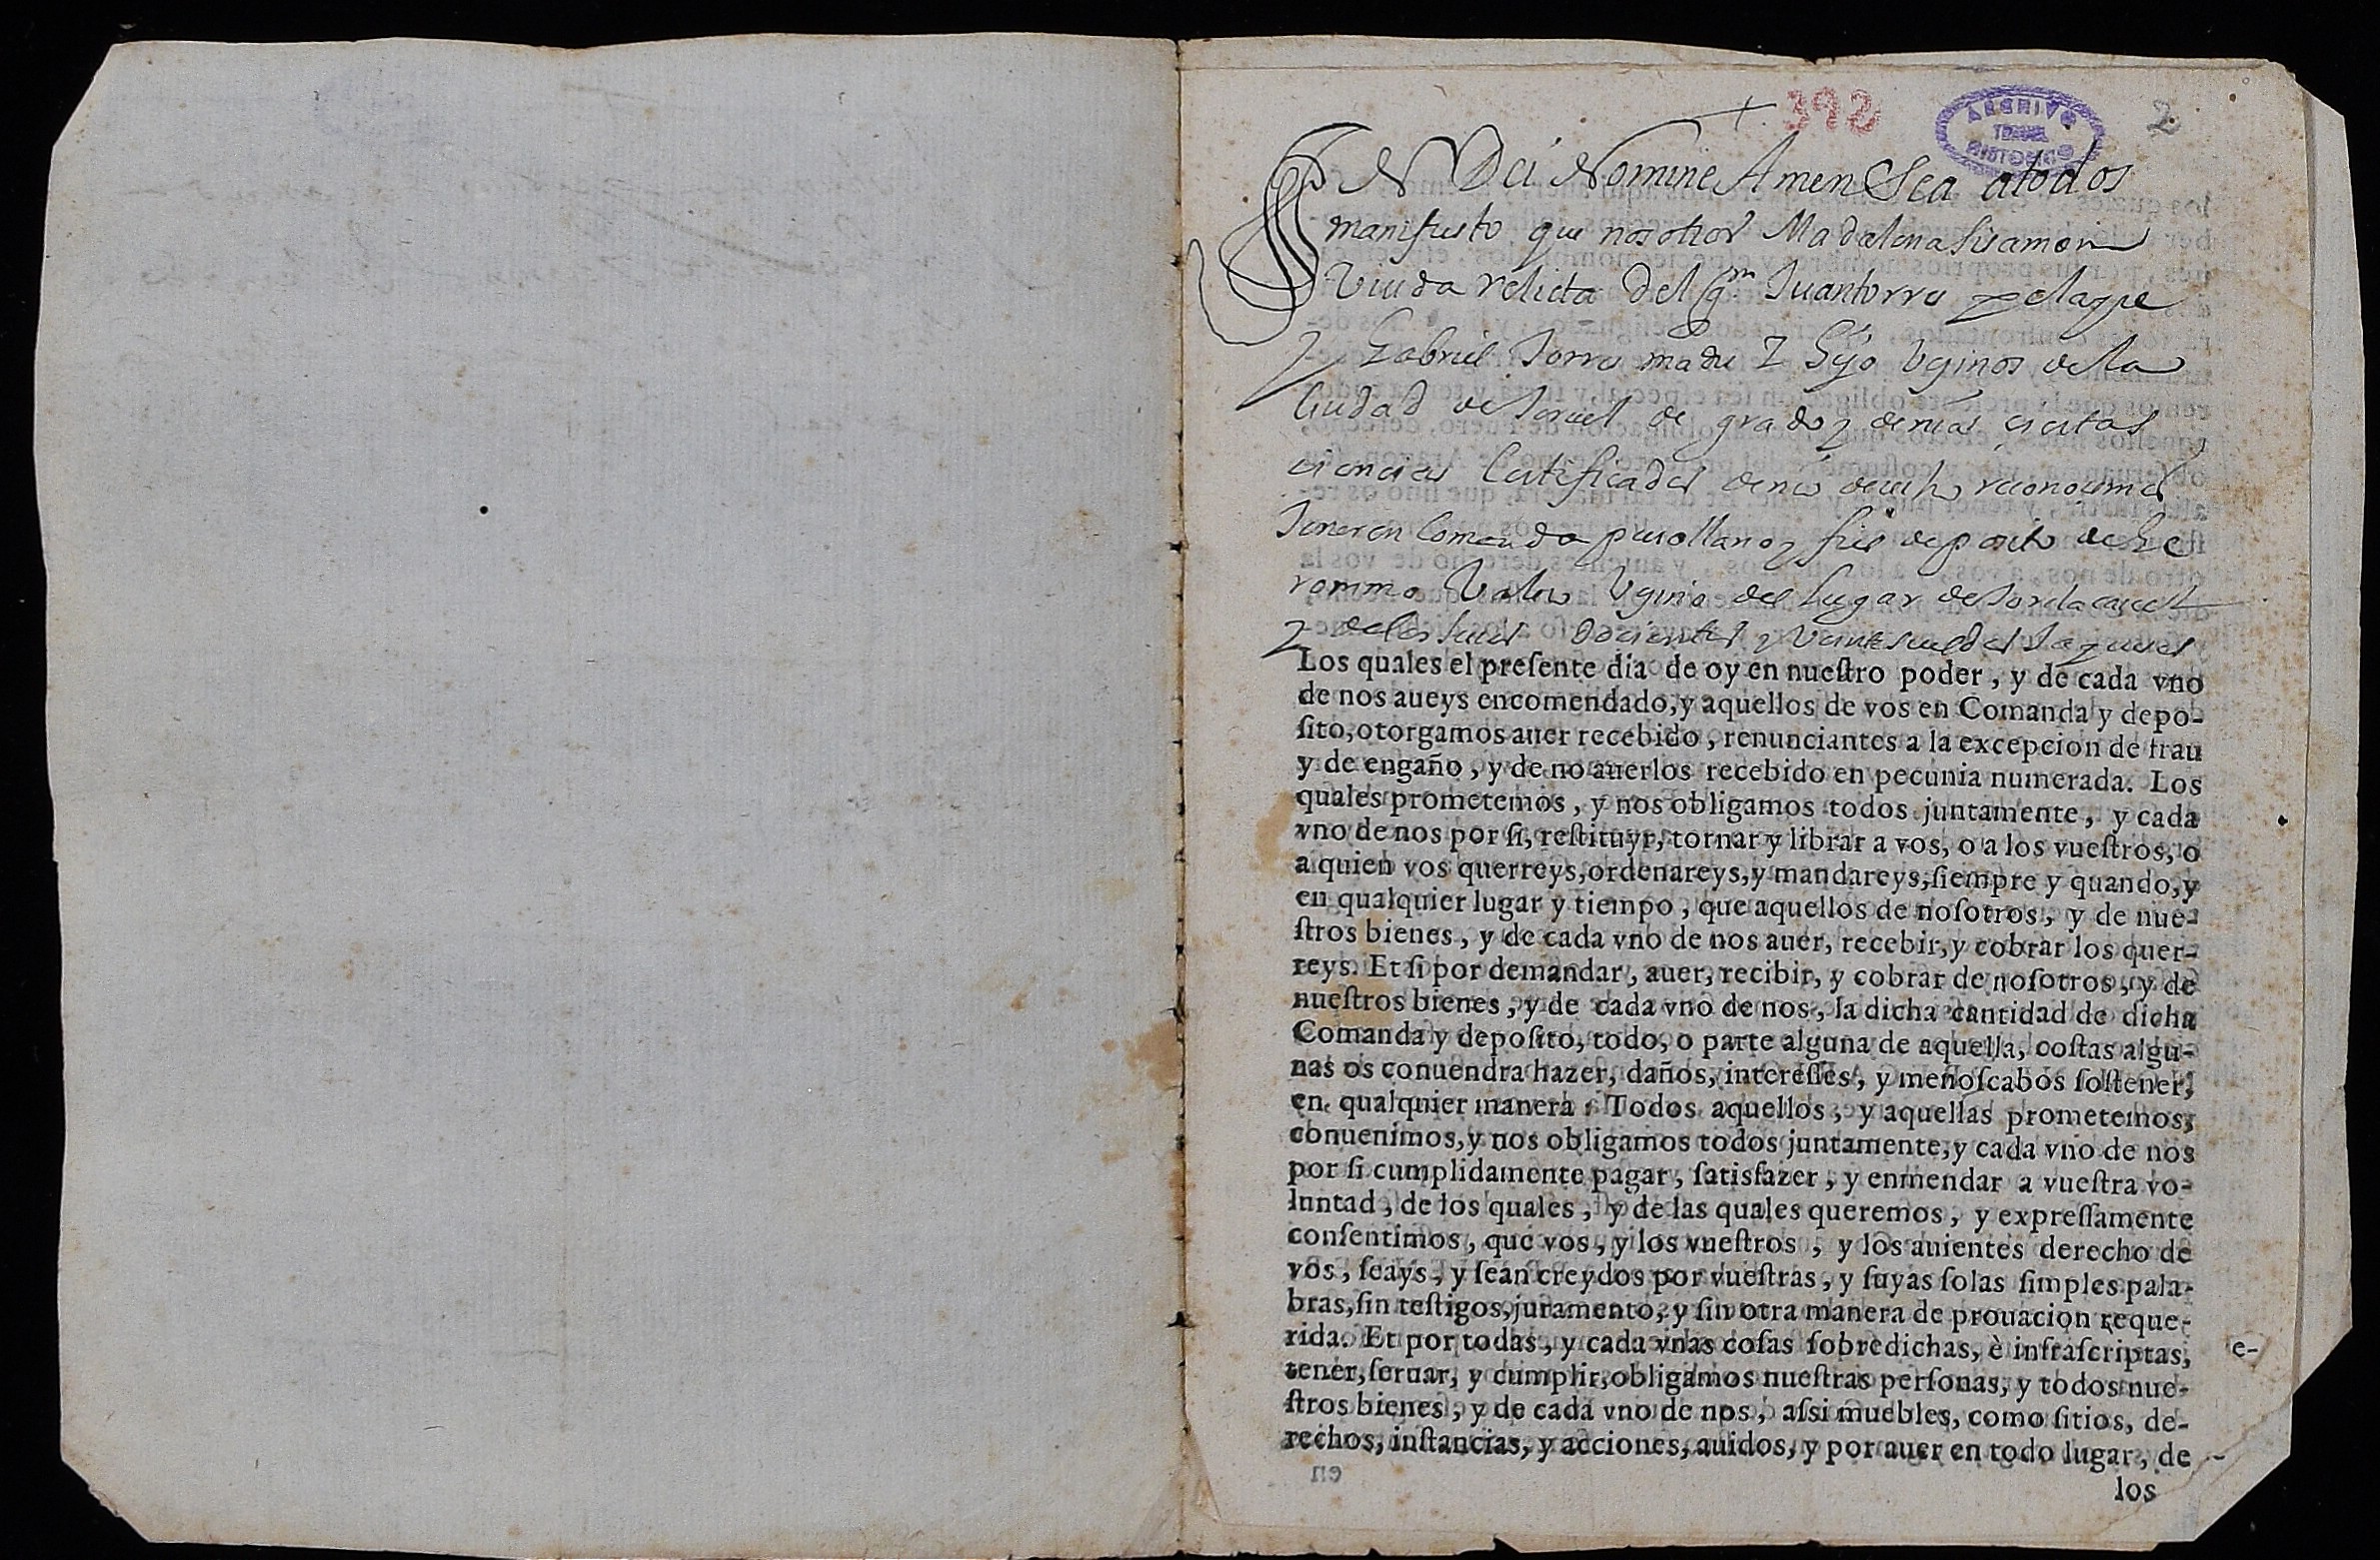 392
ARCHIVO
TERUEL
HISTORICO
2
IN Dei Nomine Amen Sea atodos
manifiesto que nosotros Madalena sisamon
Viuda relicta del qm Juan torres pelayre
y Gabriel Torres madre y hijo veçinos de la
Ciudad de Teruel de grado y de nras ciertas
ciencias Certificados de nro derecho reconocemos
Tener en Comanda puro llano y fiel deposito de Ge
ronimo Valero Veçino del lugar de
y de los suios docientos y Veinte sueldos Jaqueses
Los quales el preſente dia de oy en nueſtro poder, y de cada vno
de nos aueys encomendado, y aquellos de vos en Comanda y depo-
ſito, otorgamos auer recebido, renunciantes a la excepcion de frau
y de engaño, y de no auerlos recebido en pecunia numerada. Los
quales prometemos, y nos obligamos todos juntamente, y cada
vno de nos por ſi, reſtituyr, tornar y librar a vos, o a los vueſtros, o
a quien vos querreys, ordenareys, y mandareys, ſiempre y quando, y
en qualquier lugar y tiempo, que aquellos de noſotros, y de nue-
ſtros bienes, y de cada vno de nos auer, recebir, y cobrar los quer-
reys. Et ſi por demandar, auer, recibir, y cobrar de noſotros, y de
nueſtros bienes, y de cada vno de nos, la dicha cantidad de dicha
Comanda y depoſito, todo, o parte alguna de aquella, coſtas algu-
nas os conuendra hazer, daños, intereſſes, y menoſcabos ſoſtener,
en qualquier manera: Todos aquellos, y aquellas prometemos,
conuenimos, y nos obligamos todos juntamente, y cada vno de nos
por ſi cumplidamente pagar, ſatisfazer, y enmendar a vueſtra vo-
luntad, de los quales, y de las quales queremos, y expreſſamente
conſentimos, que vos, y los vueſtros, y los auientes derecho de
vos, ſeays, y ſean creydos por vueſtras, y ſuyas ſolas ſimples pala-
bras, ſin teſtigos, juramento, y ſin otra manera de prouacion reque-
rida. Et por todas, y cada vnas coſas ſobredichas, è infraſcriptas,
tener, ſeruar, y cumplir, obligamos nueſtras perſonas, y todos nue-
ſtros bienes, y de cada vno de nos, aſsi muebles, como ſitios, de-
rechos, inſtancias, y acciones, auidos, y por auer en todo lugar, de
los
e-